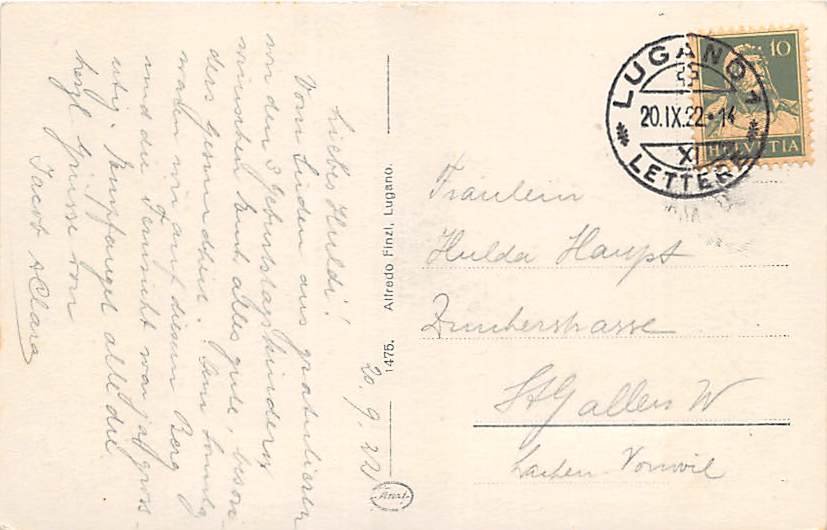 20. 9. 22
Liebes Huldi!
Vom Süden aus gratulieren
wir den 3 Geburtstagskindern
wünschen Euch alles gute, beson
ders Gesundheit. Am Sonntg
waren wir auf diesem Berg
und die Fernsicht war ja gross-
artig. Empfanget alle die
herzl Grüsse von
Jacob & Clara
1475. Alfredo Finzi, Lugano.
LUGANO 1
20.IX.22-14
XI
LETTERE
10
HELVETIA
Fräulein
Hulda Haupt
Zürcherstrasse
St Gallen W
Lachen-Vonwil